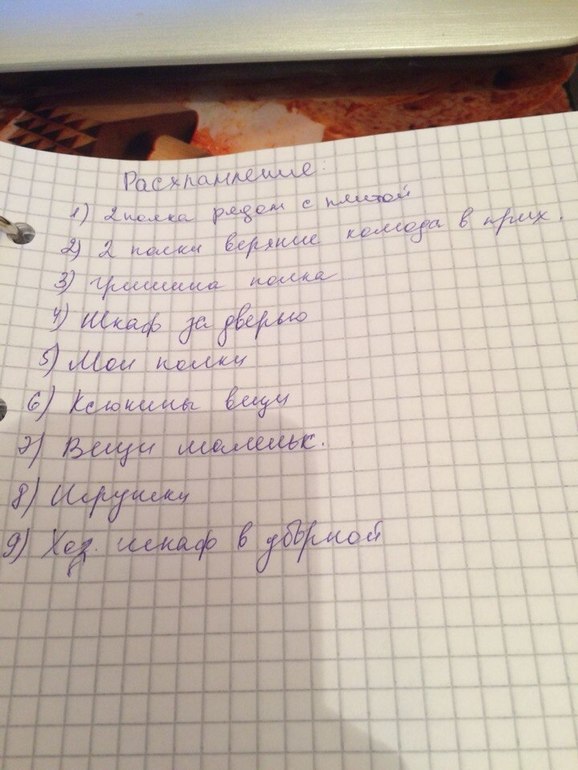 Расхламление:
1) 2 полка рядом с плитой
2) 2 полки верхние комода в прих.
3) Гришина полка
4) Шкаф за дверью
5) Мои полки
6) Ксюнины вещи
7) Вещи маленьк.
8) Игрушки
9) Хоз. шкаф в уборной